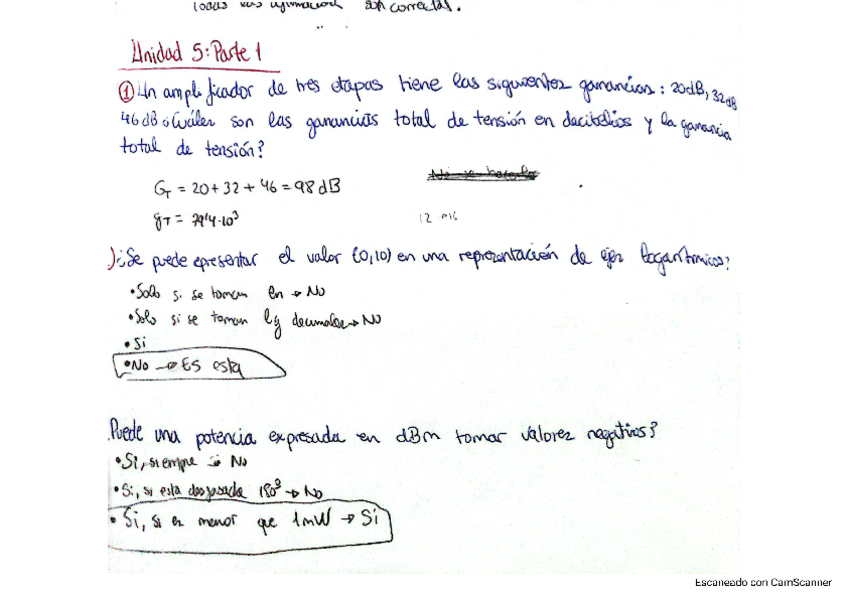 todas las afirmaciones son correctas.
Unidad 5: Parte 1
① Un amplificador de tres etapas tiene las siguientes ganancias: 20dB, 32dB
46 dB ¿Cuáles son las ganancias total de tensión en decibelios y la ganancia
total de tensión?
G_T = 20 + 32 + 46 = 98 dB
g_T = 79'4·10³
) ¿Se puede epresentar el valor (0,10) en una representación de ejes logarítmicos?
• Solo si se toman ln → No
• Solo si se toman lg decimales → No
• Si
• No → ES esta
Puede una potencia expresada en dBm tomar valores negativos?
• Si, siempre → No
• Si, si está desfasada 180º → No
• Si, si es menor que 1mW → Si
Escaneado con CamScanner